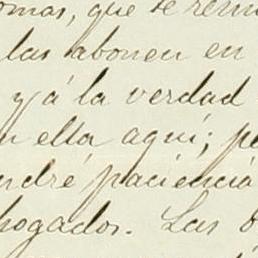 omas, que se remi
las abonen en
y á la verdad
n ella aquí; pe
ndré paciencia
hogados. Las